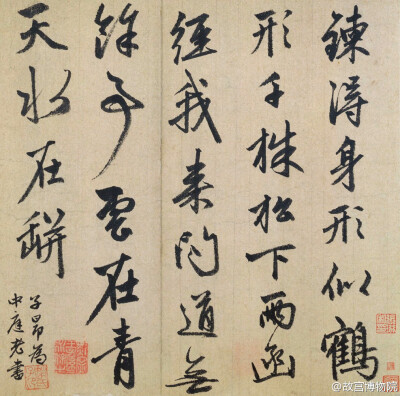 鍊得身形似鶴
形千株松下兩函
經我來問道無
餘事雲在青
天水在缾
子昂爲
中庭老書
@故宫博物院